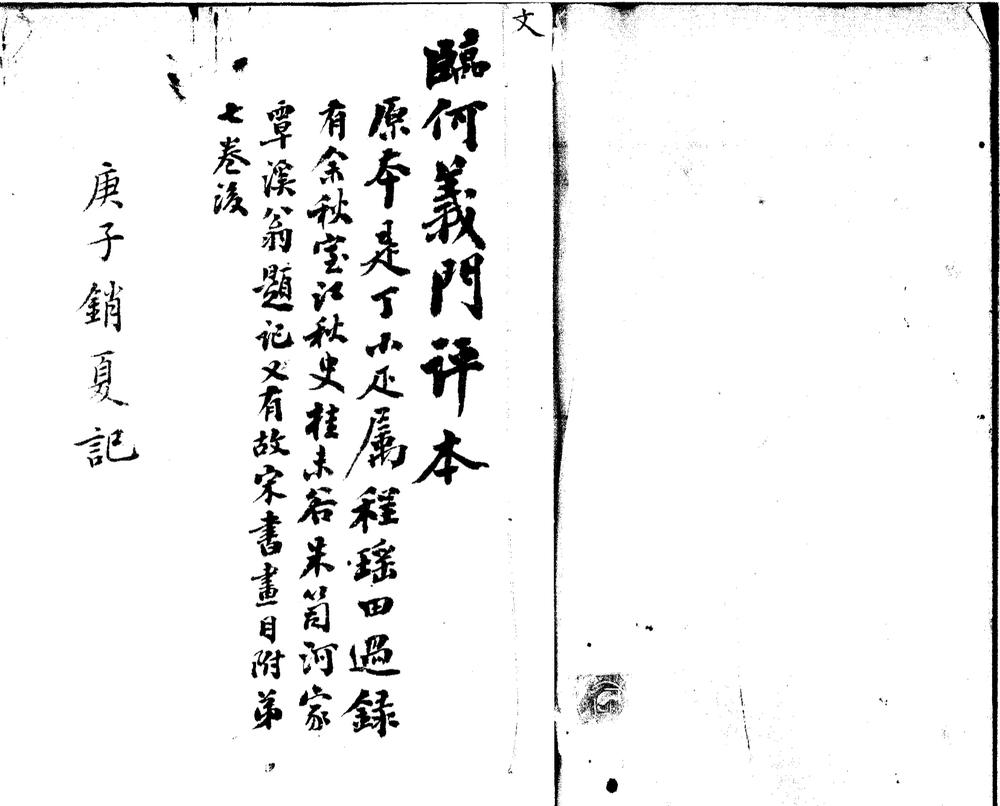 文
臨何義門評本
原本是丁小疋屬程瑤田過錄
有余秋室江秋史桂未谷朱笥河家
覃溪翁題記又有故宋書畫目附弟
七卷後
庚子銷夏記